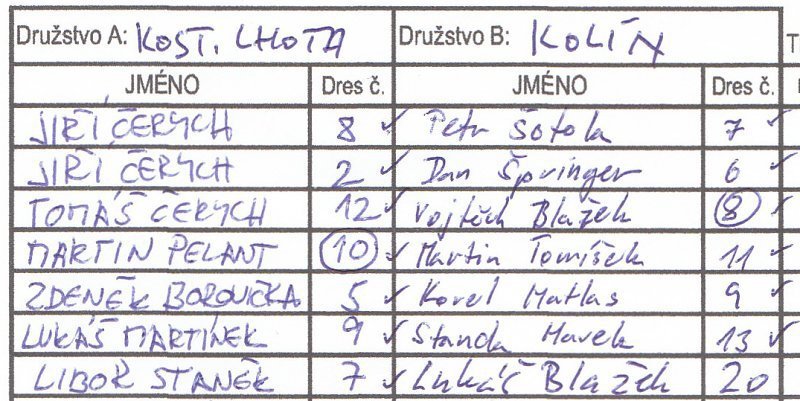 Družstvo A: KOST. LHOTA Družstvo B: KOLÍN
JMÉNO Dres č. JMÉNO Dres č.
JIŘÍ ČERYCH 8 ✓ Petr Šotola 7 ✓
JIŘÍ ČERYCH 2 ✓ Dan Špringer 6 ✓
TOMÁŠ ČERYCH 12 ✓ Vojtěch Blažek 8 ✓
MARTIN PELANT 10 ✓ Martin Tomíšek 11 ✓
ZDENĚK BOROVIČKA 5 ✓ Karel Matlas 9 ✓
LUKÁŠ MARTINEK 9 ✓ Standa Marek 13 ✓
LIBOR STANĚK 7 ✓ Lukáš Blažek 20